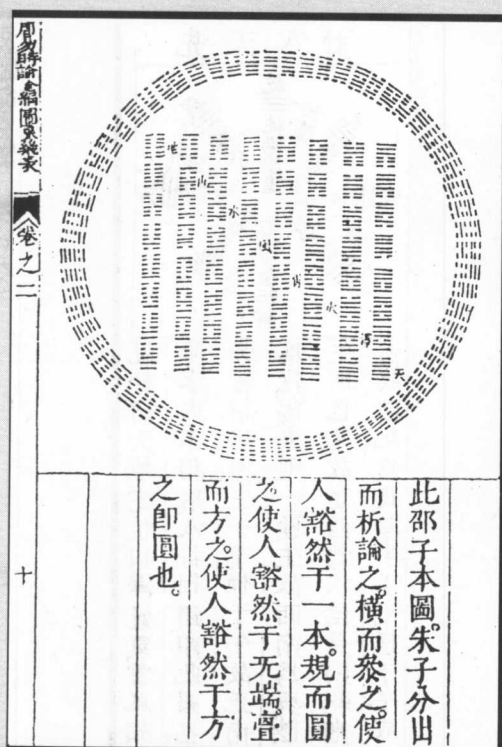 周易時論合編圖象幾表
卷之二
十
地
山
水
風
雷
火
澤
天
此邵子本圖。朱子分出
而析論之。橫而叅之。使
人豁然于一本。規而圓
之。使人豁然于无端。疊
而方之。使人豁然于方
之卽圓也。